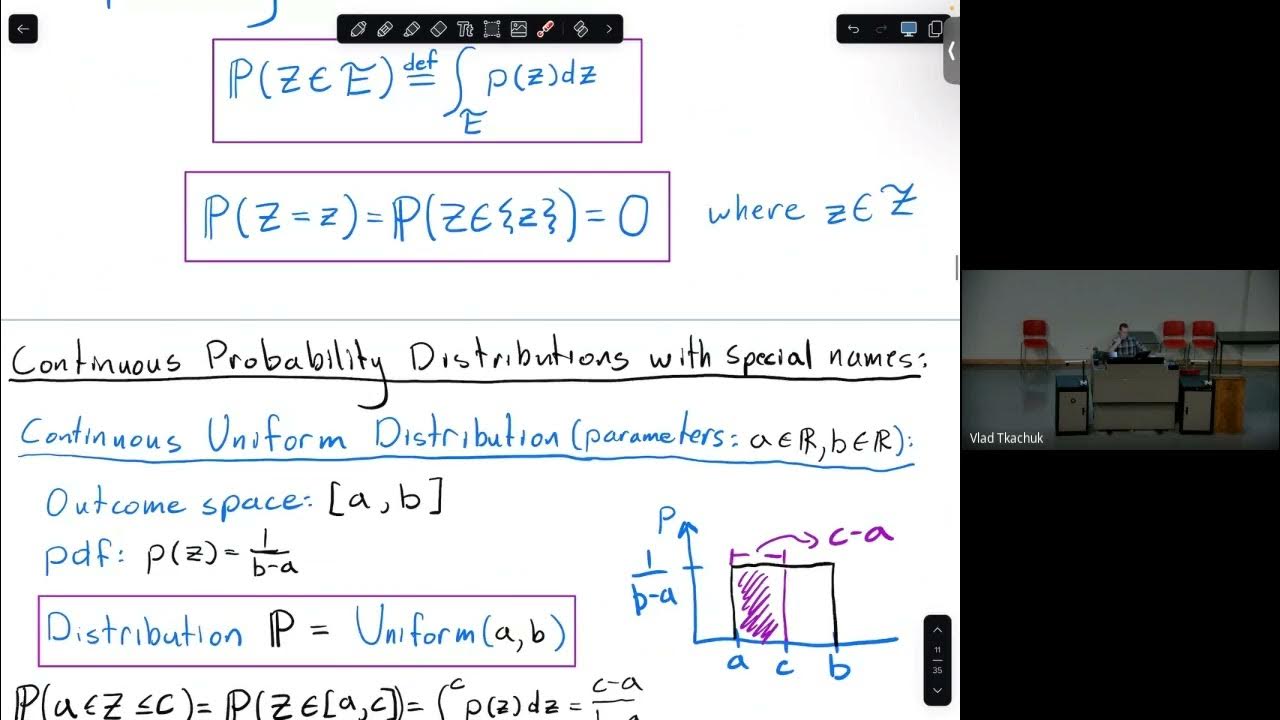 Tt
ℙ(Z∈E) def= ∫_E p(z)dz
ℙ(Z=z)=ℙ(Z∈{z})=0 where z∈Z
Continuous Probability Distributions with special names:
Continuous Uniform Distribution (parameters: a∈ℝ, b∈ℝ):
Outcome space: [a, b]
pdf: p(z) = 1/(b-a)
P
c-a
1/(b-a)
a c b
Distribution ℙ = Uniform(a, b)
ℙ(a ∈ Z ≤ c) = ℙ(Z∈[a,c]) = ∫^c p(z)dz = c-a
11
35
Vlad Tkachuk